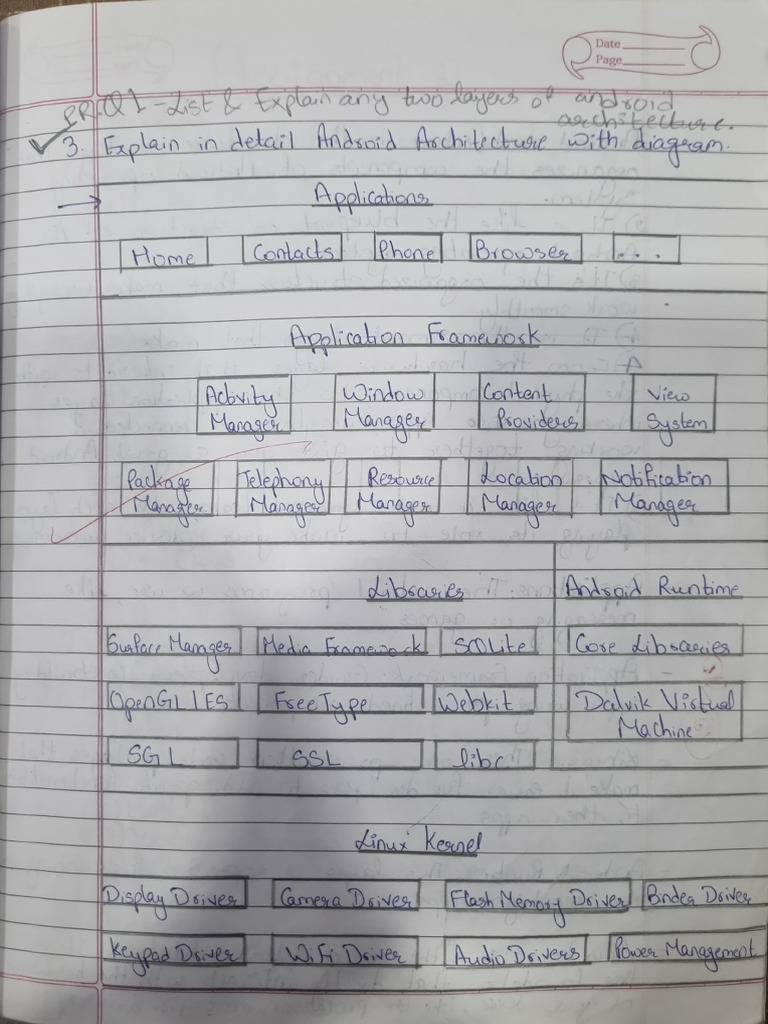 Date
Page
PR.Q1 - List & Explain any two layers of android
architecture.
3. Explain in detail Android Architecture with diagram.
Applications
Home Contacts Phone Browser ...
Application Framework
Activity Window Content View
Manager Manager Providers System
Package Telephony Resource Location Notification
Manager Manager Manager Manager Manager
Libraries Android Runtime
Surface Manager Media Framework SQLite Core Libraries
OpenGL|ES FreeType Webkit Dalvik Virtual
Machine
SGL SSL libc
Linux Kernel
Display Driver Camera Driver Flash Memory Driver Binder Driver
Keypad Driver WiFi Driver Audio Drivers Power Management